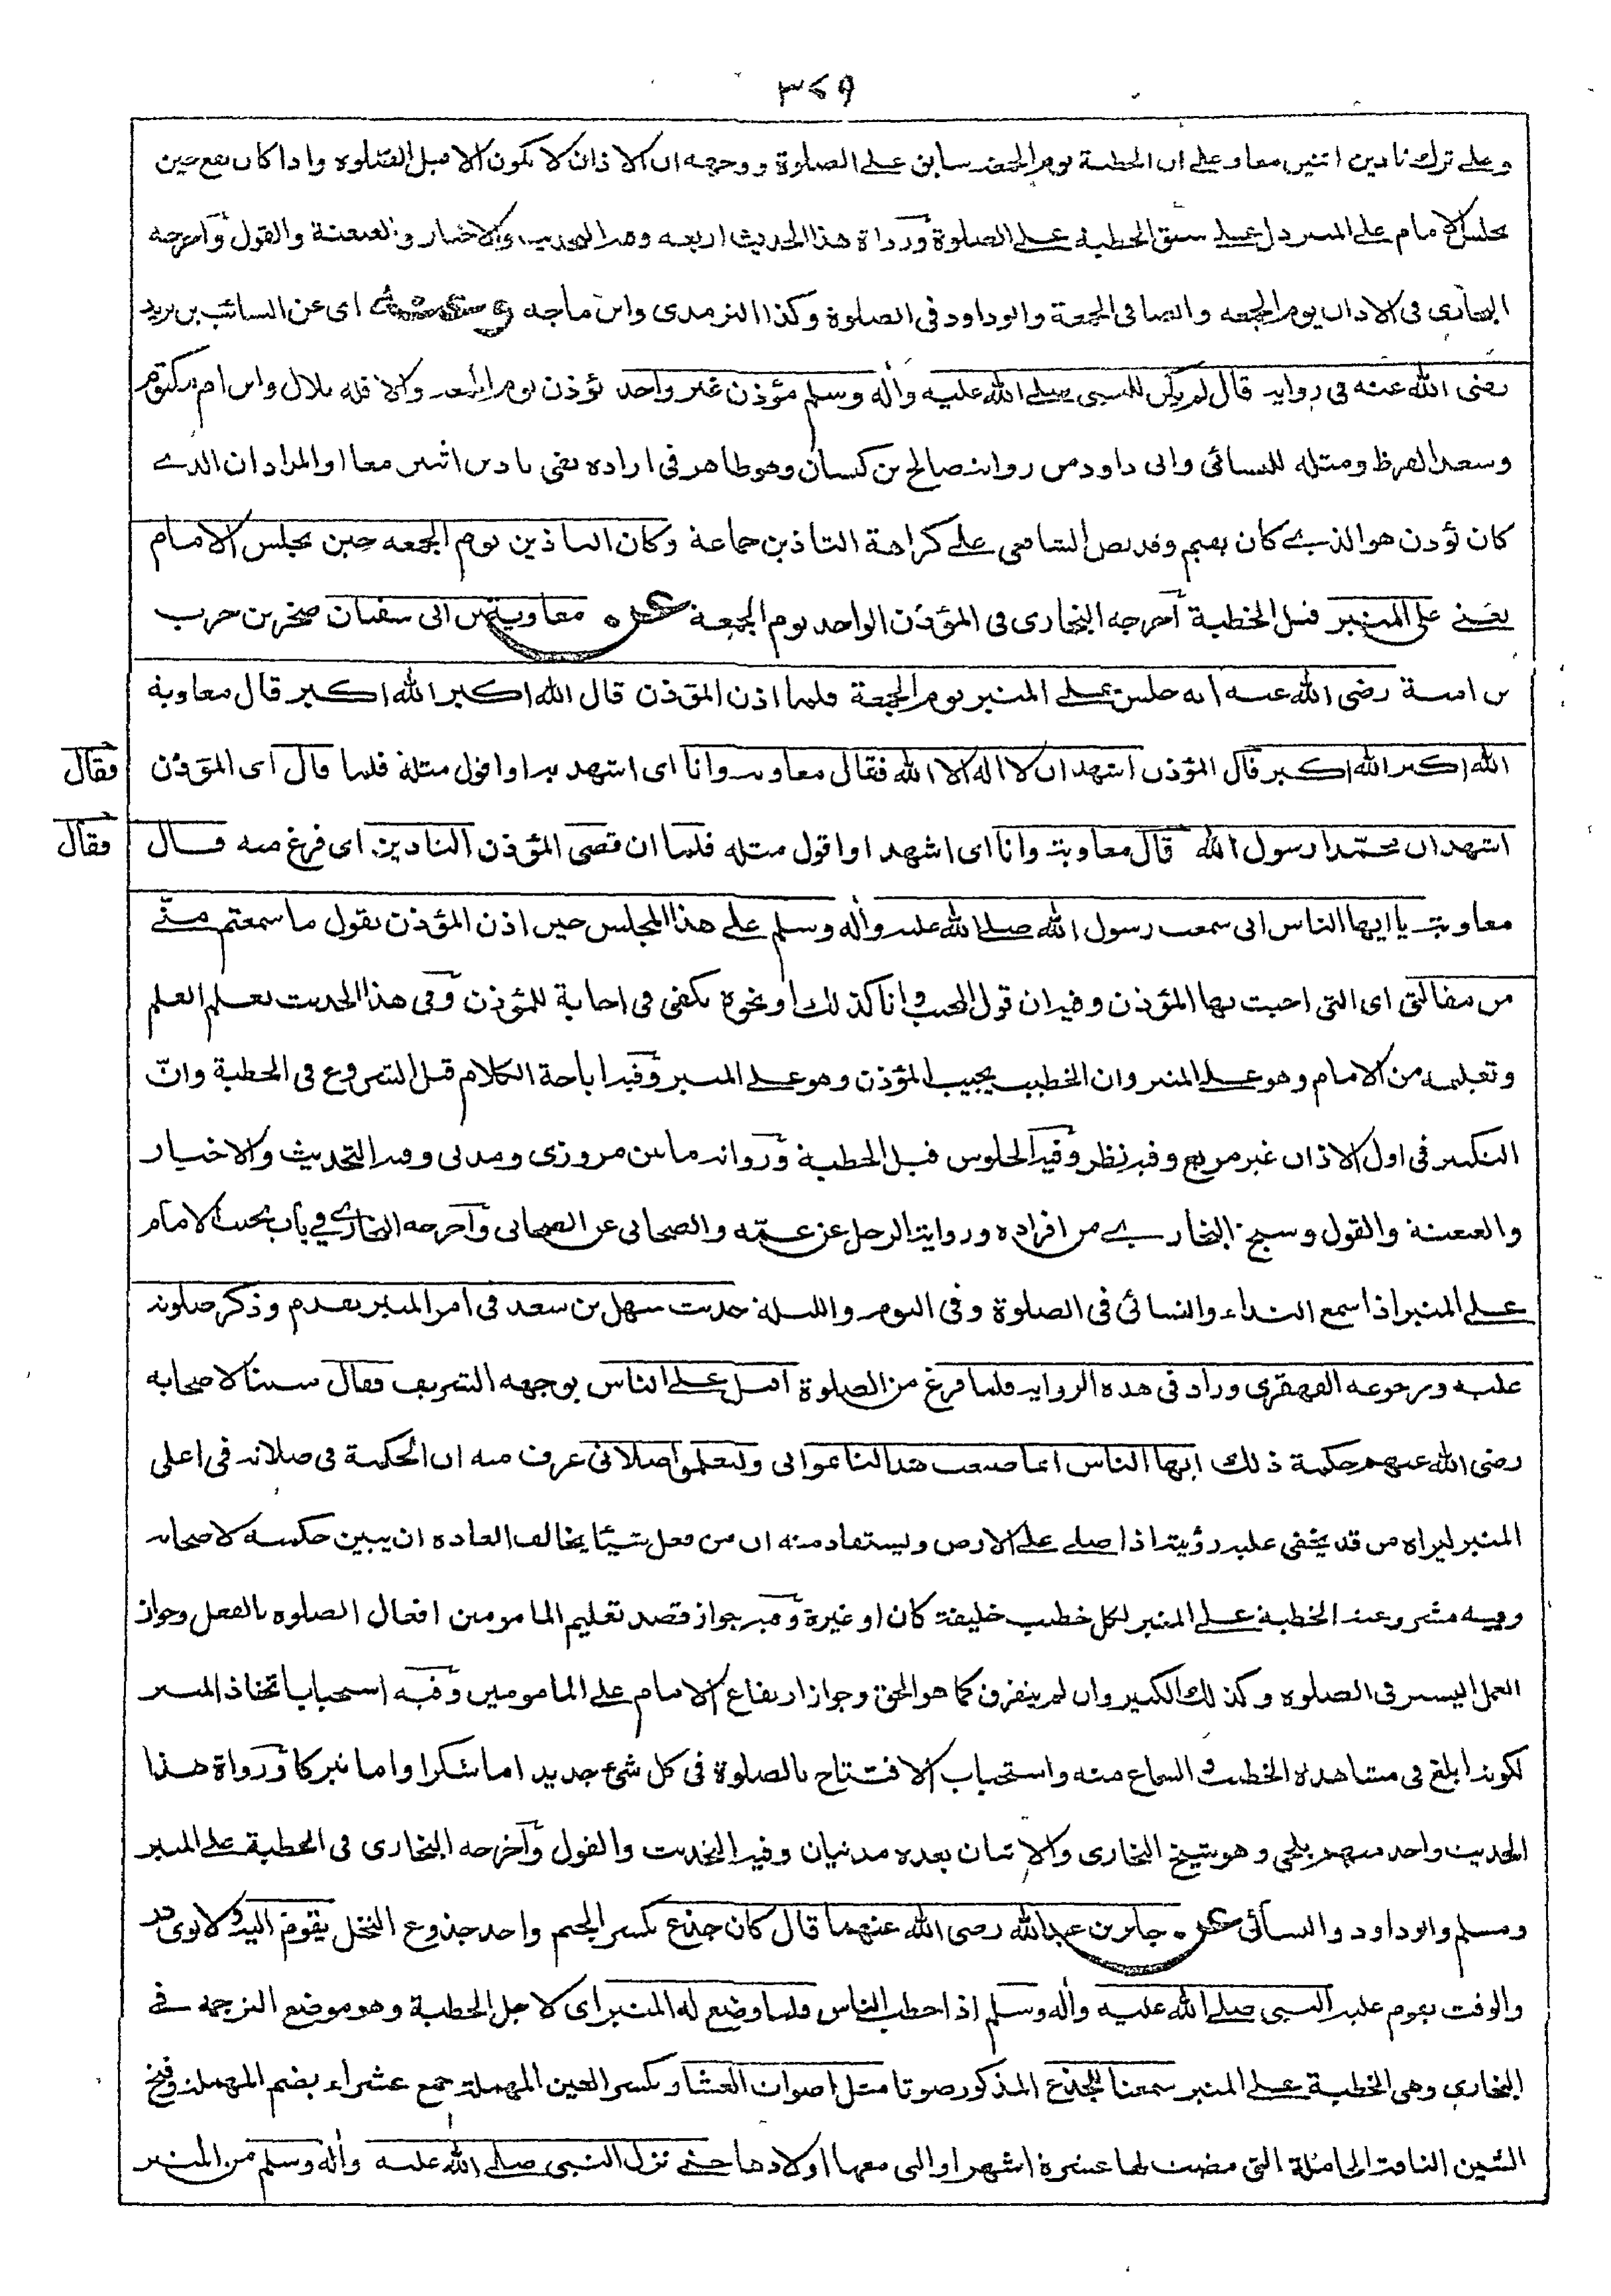 ٣٧٩
وعلى ترك تاذين اثنين معا وعلى ان الخطبة يوم الجمعة سابق على الصلوة ووجهه ان الاذان لا يكون الا قبل الصلوة واذا كان يقع حين
يجلس الامام على المنبر دل على سبق الخطبة على الصلوة ورواة هذا الحديث اربعة وفيه التحديث والاخبار والعنعنة والقول وأخرجه
البخاري في الاذان يوم الجمعة وايضا في الجمعة وابو داود في الصلوة وكذا الترمذى وابن ماجه اى عن السائب بن يزيد
رضى الله عنه في رواية قال لم يكن للنبى صلى الله عليه وأله وسلم مؤذن غير واحد يؤذن يوم الجمعة والا فله بلال وابن ام مكتوم
وسعد القرظ ومثله للنسائى وابى داود من رواية صالح بن كيسان وهو ظاهر فى ارادة نفى تاذين اثنين معا او المراد ان الذے
كان يؤذن هو الذے كان يقيم وقد نص الشافعى على كراهة التاذين جماعة وكان التاذين يوم الجمعة حين يجلس الامام
يعنے على المنبر قبل الخطبة أخرجه البخارى فى المؤذن الواحد يوم الجمعة عن معاوية بن ابى سفيان صخر بن حرب
بن امية رضى الله عنه انه جلس على المنبر يوم الجمعة فلما اذن المؤذن قال الله اكبر الله اكبر قال معاوية
الله اكبر الله اكبر قال المؤذن اشهد ان لا اله الا الله فقال معاوية وانا اى اشهد به او اقول مثله فلما قال اى المؤذن
فقال
اشهد ان محمدا رسول الله قال معاوية وانا اى اشهد او اقول مثله فلما ان قضى المؤذن التاذين اى فرغ منه قال
فقال
معاوية يا ايها الناس انى سمعت رسول الله صلى الله عليه وأله وسلم على هذا المجلس حين اذن المؤذن يقول ما سمعتم منّے
من مقالتى اى التى اجبت بها المؤذن وفيه ان قول المجيب وانا كذلك او نحوه يكفى فى اجابة للمؤذن وفى هذا الحديث تعلم العلم
وتعليمه من الامام وهو على المنبر وان الخطيب يجيب المؤذن وهو على المنبر وفيه اباحة الكلام قبل الشروع فى الخطبة وانّ
التكبير فى اول الاذان غير مربع وفيه نظر وفيه الجلوس قبل الخطبة ورواته ما بين مروزى ومدنى وفيه التحديث والاخبار
والعنعنة والقول وشيخ البخارے من افراده ورواية الرجل عن عمه والصحابى عن الصحابى وأخرجه البخارے في باب يجيب الامام
على المنبر اذا سمع النداء والنسائى فى الصلوة وفى اليوم والليلة حديث سهل بن سعد فى امر المنبر تقدم وذكر صلوته
عليه ورجوعه القهقرى وزاد فى هذه الرواية فلما فرغ من الصلوة اقبل على الناس بوجهه الشريف فقال مبينا لاصحابه
رضى الله عنهم حكمة ذلك ايها الناس انما صنعت هذا لتاتموا بى ولتعلموا صلاتى عرف منه ان الحكمة فى صلاته فى اعلى
المنبر ليراه من قد يخفى عليه رؤيته اذا صلى على الارض ويستفاد منه ان من فعل شيئا يخالف العادة ان يبين حكمته لاصحابه
وفيه مشروعية الخطبة على المنبر لكل خطيب خليفة كان او غيره وفيه جواز قصد تعليم المامومين افعال الصلوة بالفعل وجواز
العمل اليسير فى الصلوة وكذلك الكثير وان لم يتفرق كما هو الحق وجواز ارتفاع الامام على المامومين وفيه استحباب اتخاذ المنبر
لكونه ابلغ فى مشاهدة الخطيب والسماع منه واستحباب الافتتاح بالصلوة فى كل شئ جديد اما شكرا واما تبركا ورواة هذا
الحديث واحد منهم بلخى وهو شيخ البخارى والاثنان بعده مدنيان وفيه التحديث والقول وأخرجه البخارى فى الخطبة على المنبر
ومسلم وابو داود والنسائى عن جابر بن عبد الله رضى الله عنهما قال كان جذع بكسر الجيم واحد جذوع النخل يقوم اليه ولابوى ذر
والوقت يقوم عليه النبى صلى الله عليه وأله وسلم اذا خطب الناس فلما وضع له المنبر اى لاجل الخطبة وهو موضع الترجمة فے
البخارى وهى الخطبة على المنبر سمعنا للجذع المذكور صوتا مثل اصوات العشار بكسر العين المهملة جمع عشراء بضم المهملة وفتح
الشين الناقة الحاملة التى مضت لها عشرة اشهر او التى معها اولادها حتے نزل النبى صلى الله عليه وأله وسلم من المنبر